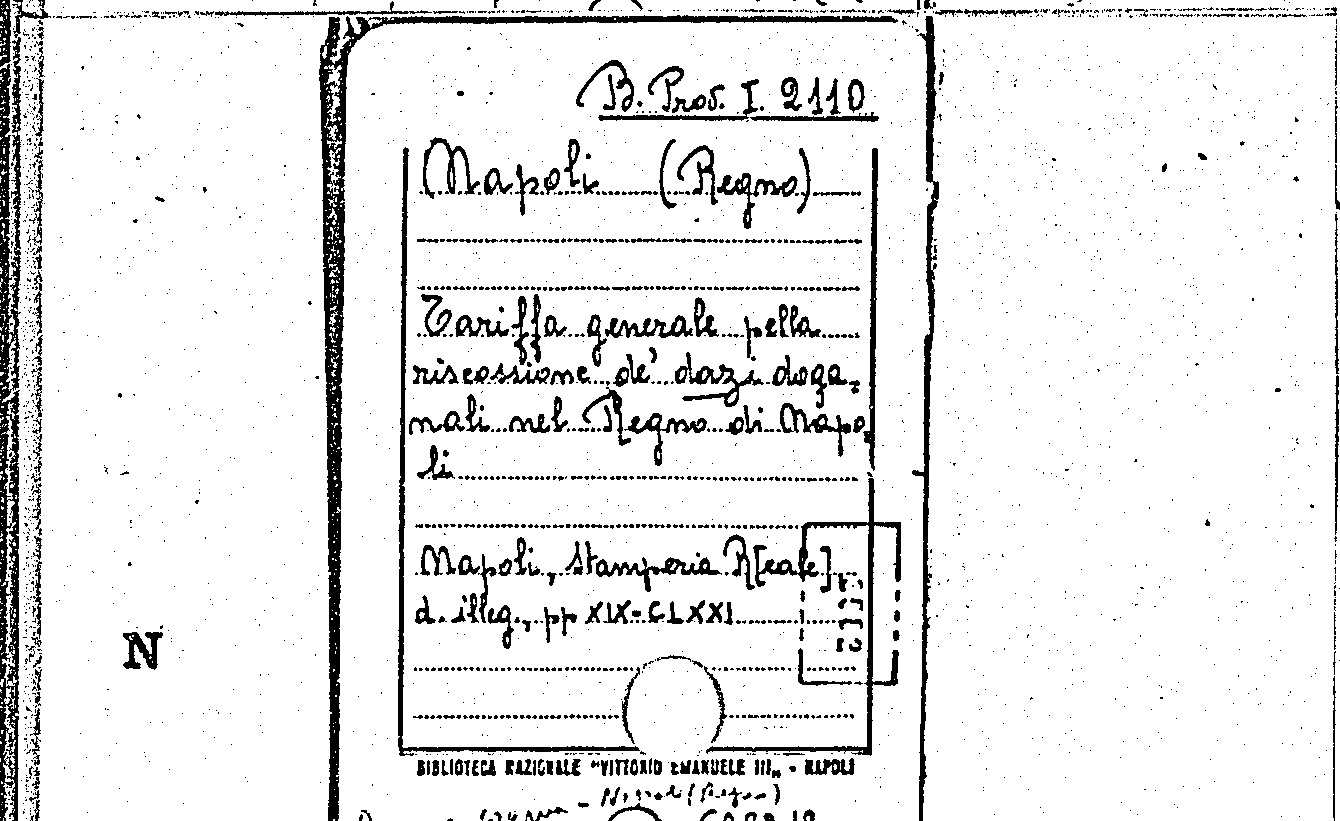 B. Prov. I. 2110
Napoli (Regno)
Tariffa generale pella
riscossione de' dazi doga-
nali nel Regno di Napo-
li
Napoli, Stamperia R[eale],
d. illeg., pp XIX-CLXXI
N
BIBLIOTECA NAZIONALE "VITTORIO EMANUELE III„ - NAPOLI
Napoli (Regno)